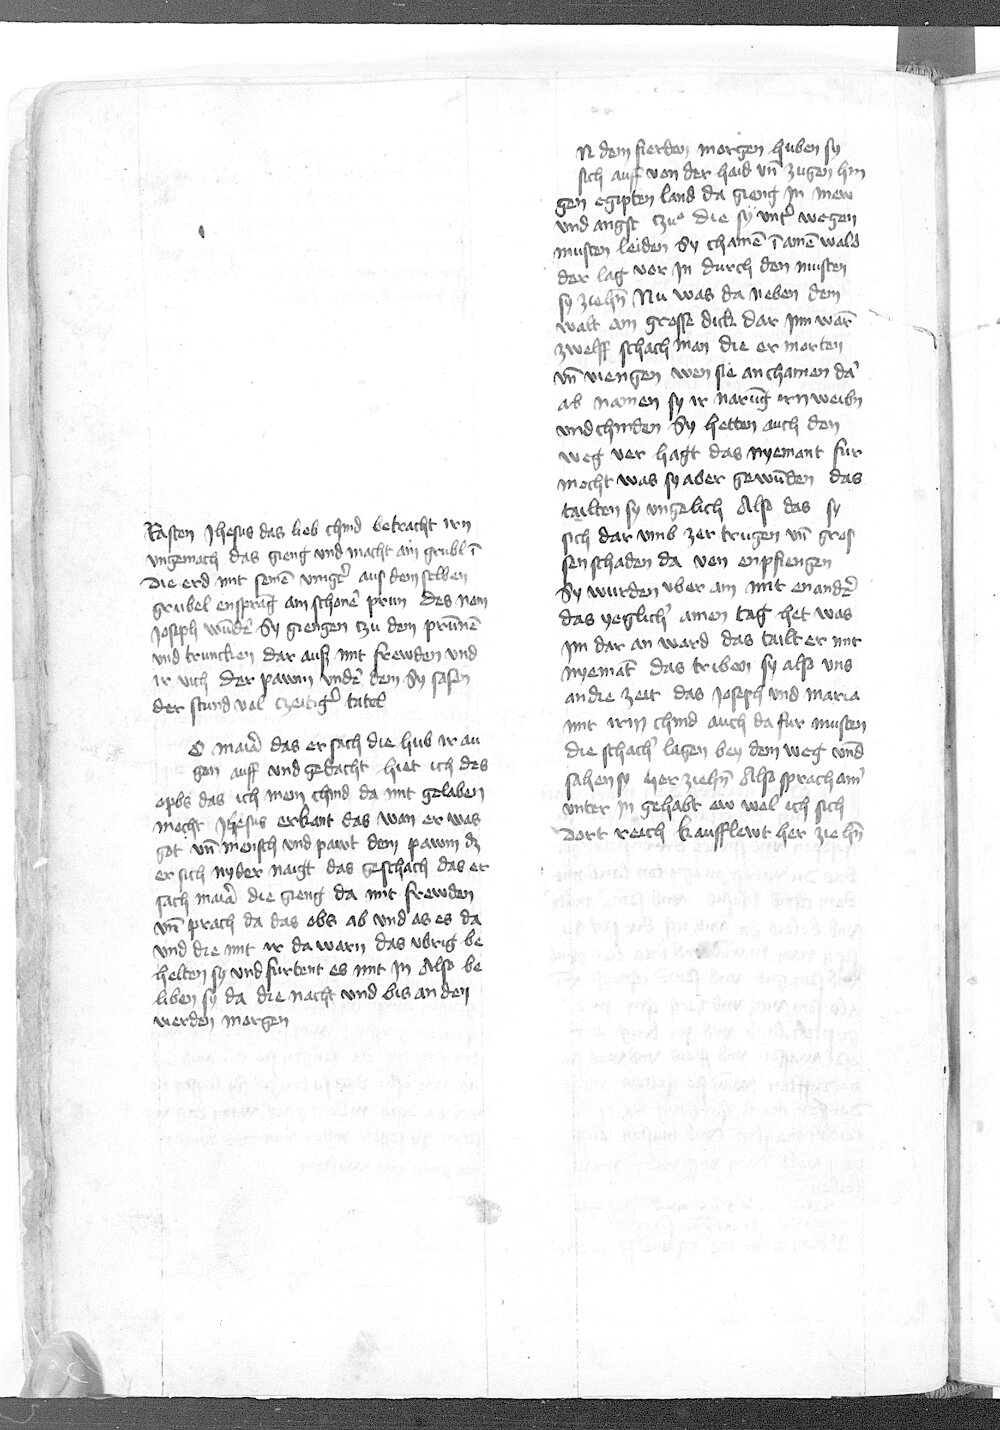 Rasten Jhesus das lieb chind betracht irn
ungemach das gieng und macht ain grubl ī
die erd mit seinē vingr̄ aus dem selben
grubel ensprāg ain schoner̄ prun des nam
Joseph wūder̄ Sy giengen tzu dem prūnē
und truncken dar aus mit frewden und
ir vich der pawm under̄ dem Sy sasen
der stund vol tzeitigr̄ tatel
O maīa das ersach die hub ir au
gen auff und gedacht hiet ich des
opbs das ich mein chind da mit gelaben
mocht Jhesus erkant das wan er was
got vn̄ mensch und pawt dem pawm dz
er sich nyder naigt das geschach das er
sach maīa die gieng da mit frewden
vn̄ prach da das obs ab und as es da
und die mit ir da warn das ubrig be
helten sy und furtent es mit in Also be
liben sy da die nacht und bis an den
vierden morgen
N dem fierden morgen huben sy
sich auff von der haid vn̄ zugen hin
gen egipten land da gieng in mew
und angst tzue die sy untr̄ wegen
musten leiden Sy chamē ī ainē wald
der lag vor in durch den musten
sy ziehn̄ Nu was da neben dem
walt ain grosse dick dar inn warn̄
zwelff schach man die er morten
vn̄ viengen wen sie an chamen da
ab namen sy ir narūg irn weibn
und chinden Sy hetten auch den
weg ver hagt das nyemant fur
mocht was sy aber gewūden das
tailten sy ungelich Also das sy
sich dar umb zer trugen vn̄ gros
sen schaden da von enpfiengen
Sy wurden uber ain mit enander̄
das yeglichr̄ ainen tag het was
im dar an ward das tailt er mit
nyemāt das triben sy also uns
an die zeit das Joseph und maria
mit irm chind auch da fur musten
die schachr̄ lagen bey dem weg und
sahen sy her ziehn̄ Also sprach ainr̄
unter in gehabt ew wol ich sich
dort reich kaufflewt her ziehn̄